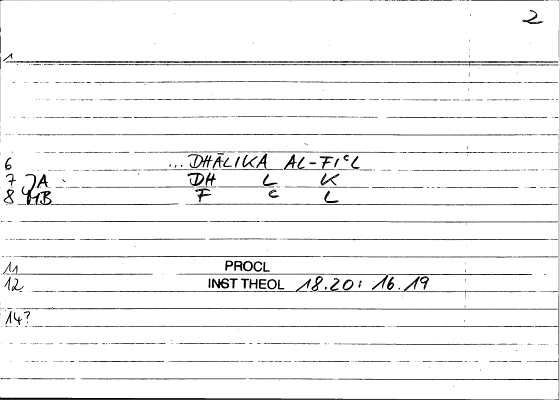 2
1
6 ...DHĀLIKA AL-FIᶜL
7 JA DH L K
8 HB F ᶜ L
11 PROCL
12 INST THEOL 18.20: 16.19
14?